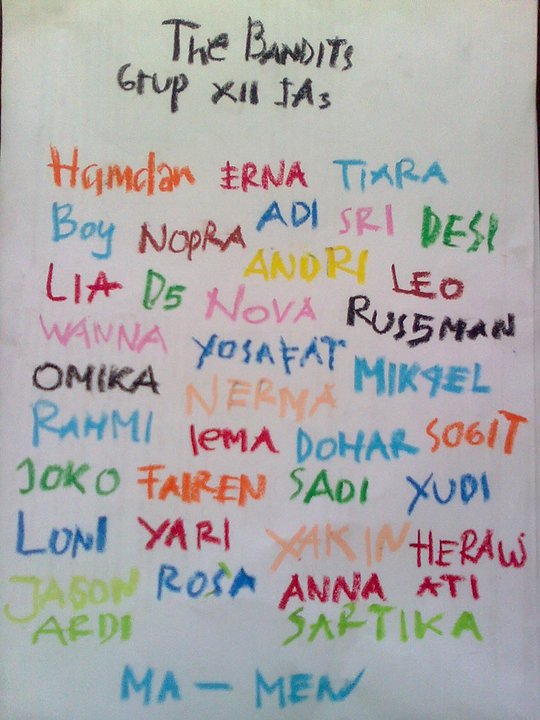 The BANDITS
Grup XII IA3
Hamdan ERNA TIARA
Boy NOPRA ADI SRI DESI
LIA D5 NOVA ANDRI LEO
WANNA YOSAFAT RUS5MAN
OMIKA NERMA MIKAEL
RAHMI IEMA DOHAR SOGIT
JOKO FAIREN SADI YUDI
LUNI YARI YAKIN HERAW
JASON ROSA ANNA ATI
ARDI SARTIKA
MA - MEN